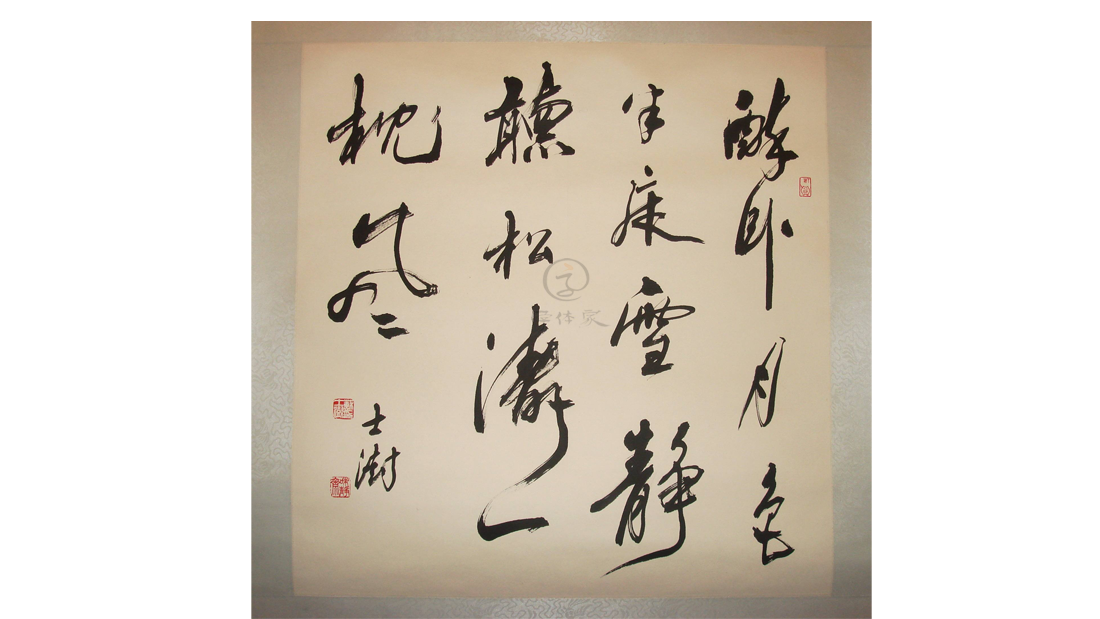 醉卧月色
半床雪静
聽松濤一
枕風
士澍
字体家